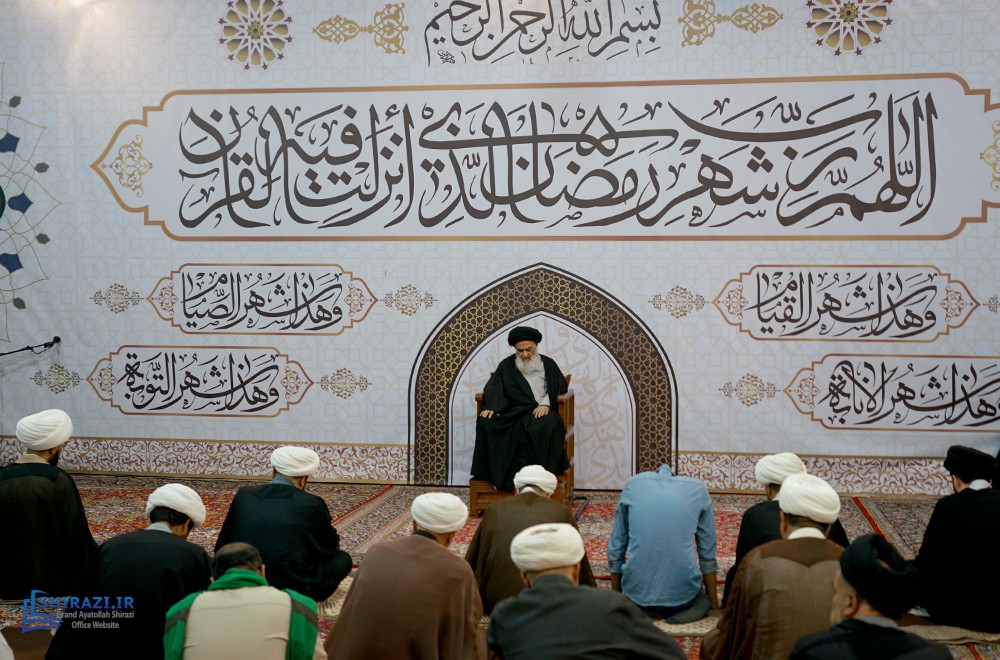 بسم الله الرحمن الرحيم
اللهم رب شهر رمضان الذي أنزلت فيه القرآن
وهذا شهر القيام
وهذا شهر الصيام
وهذا شهر الانابة
وهذا شهر التوبة
SHIRAZI.IR
Grand Ayatollah Shirazi
Office Website